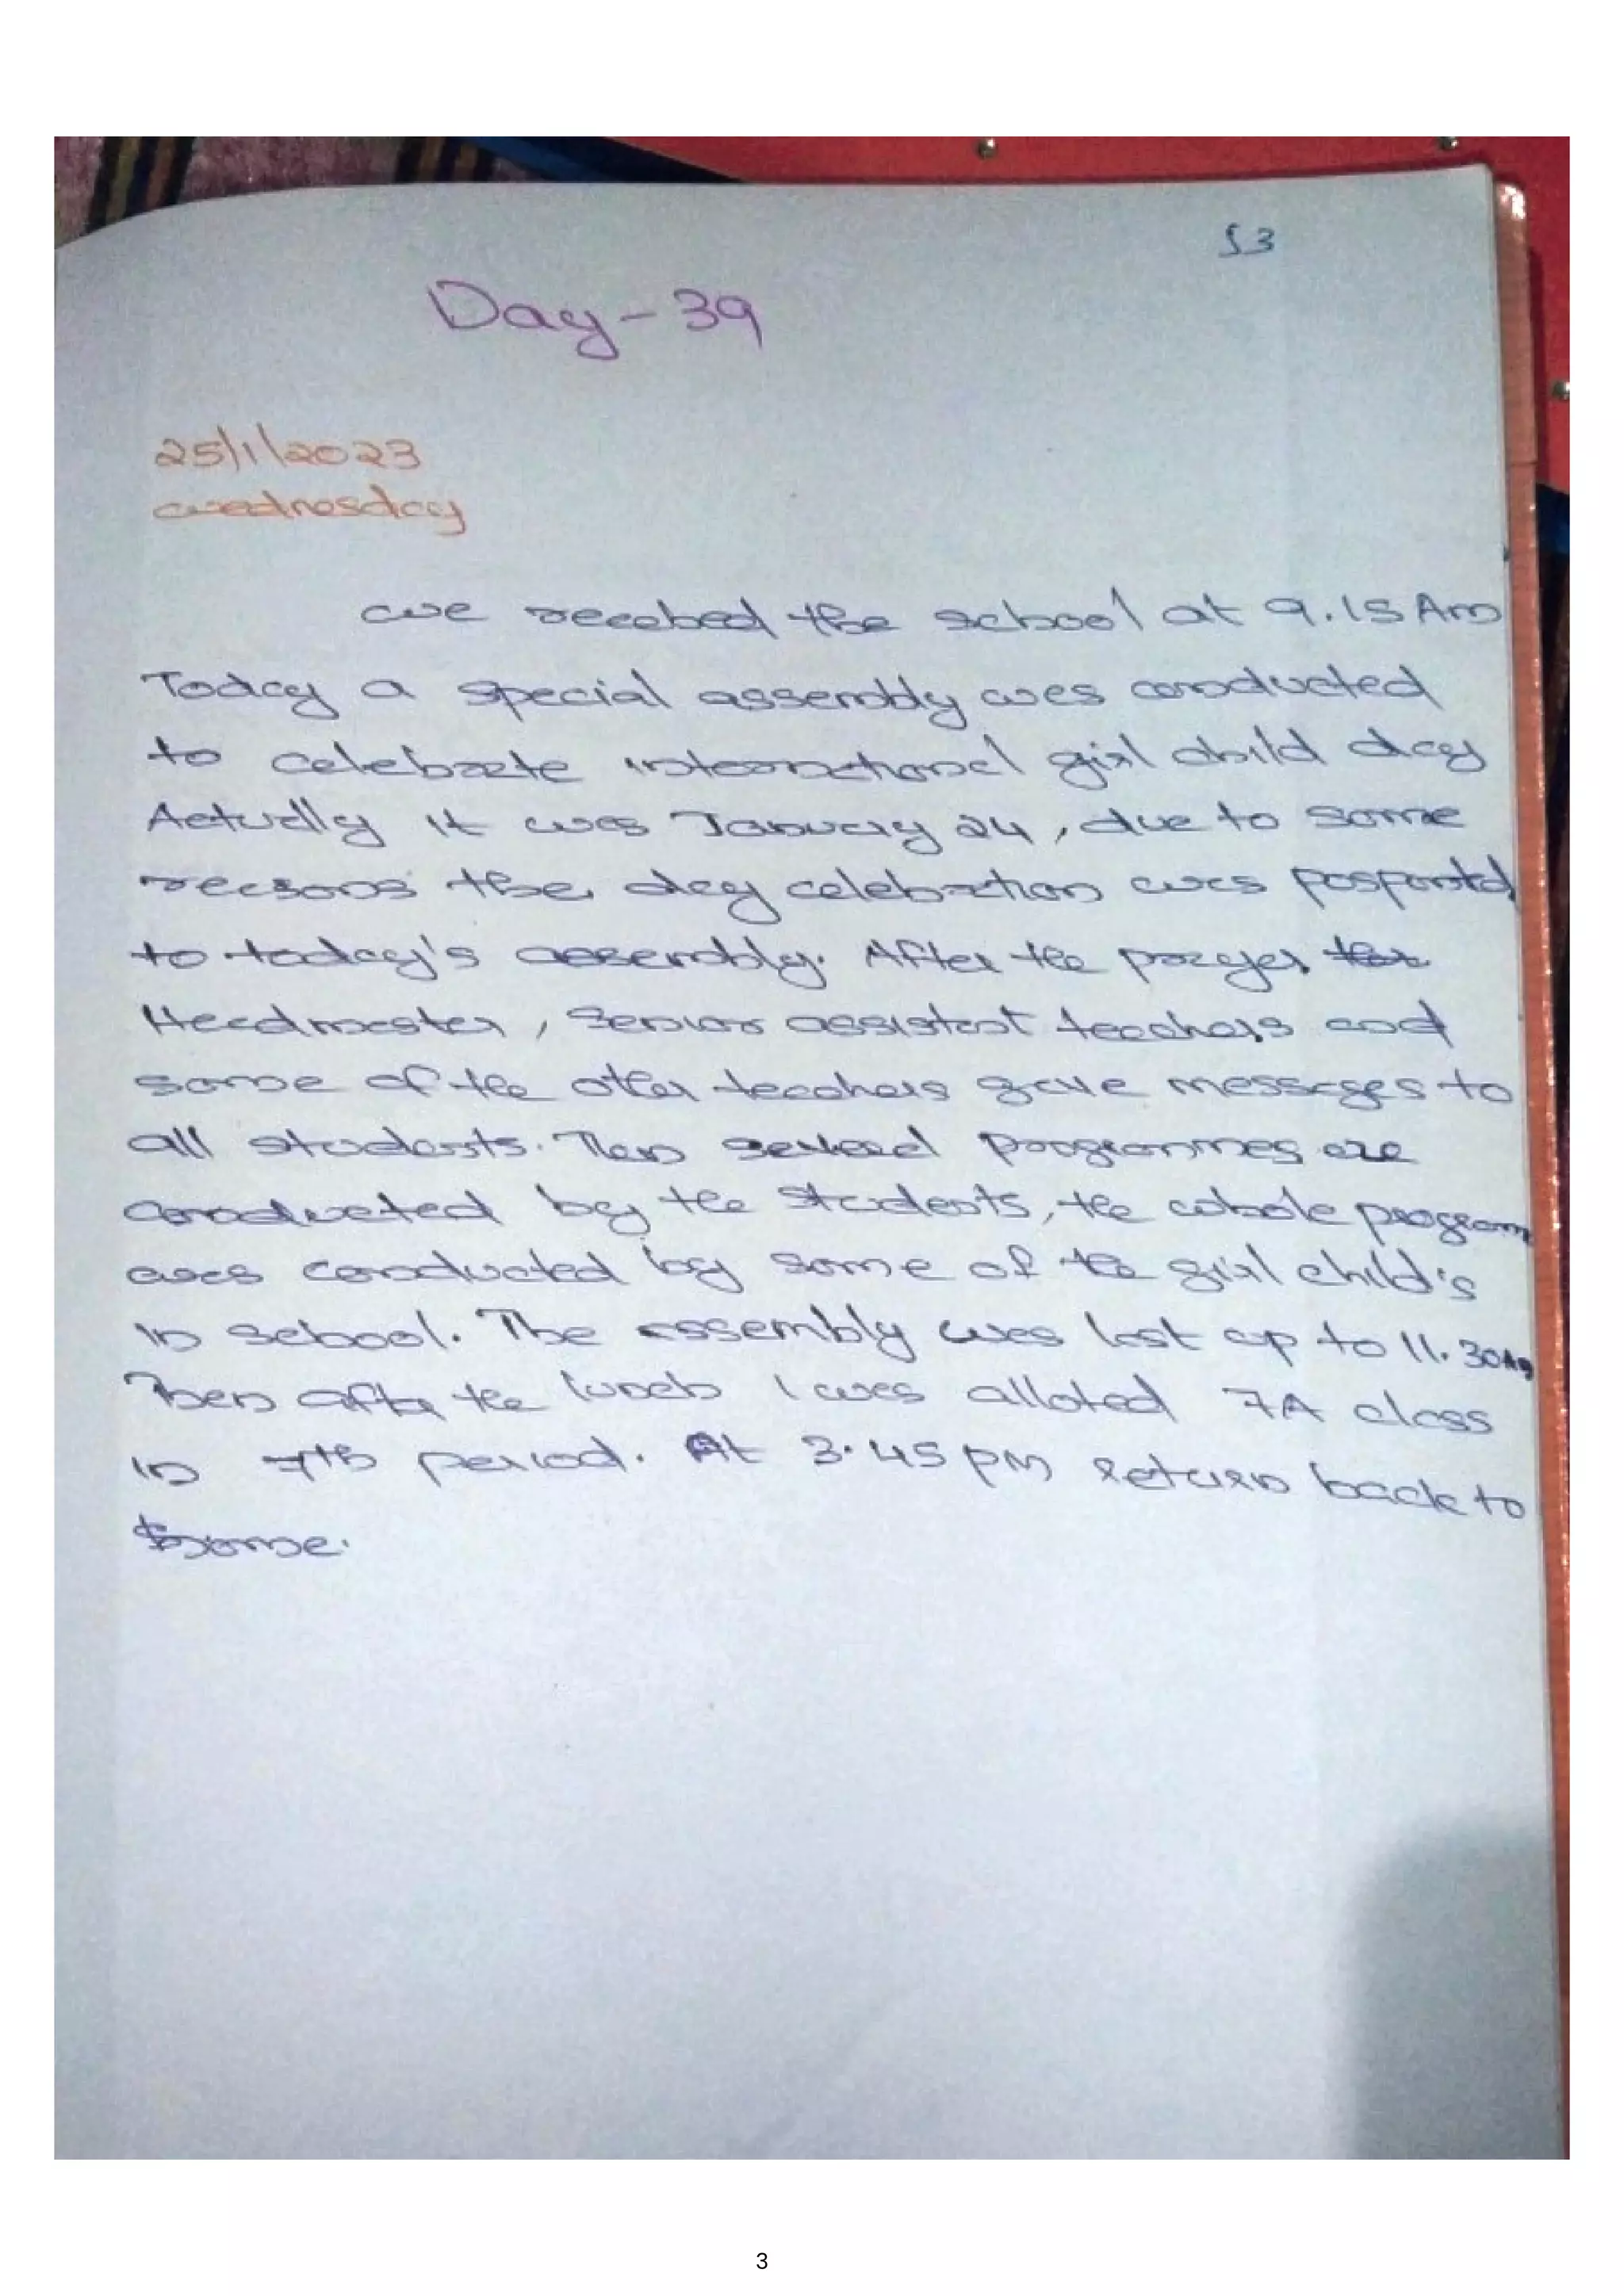 53
Day - 39
25/1/2023
wednesday
we reached the school at 9.15 Am
Today a special assembly was conducted
to celebrate international girl child day
Actually it was January 24, due to some
reasons the day celebration was
to today's assembly. After the prayer the
Headmaster, senior assistant teachers and
some of the other teachers gave messages to
all students. Then several programmes are
conducted by the students, the whole program
was conducted by some of the girl child's
in school. The assembly was last up to 11.30Am
Then after the lunch I was alloted 7A class
in 7th period. At 3.45 PM return back to
home.
3